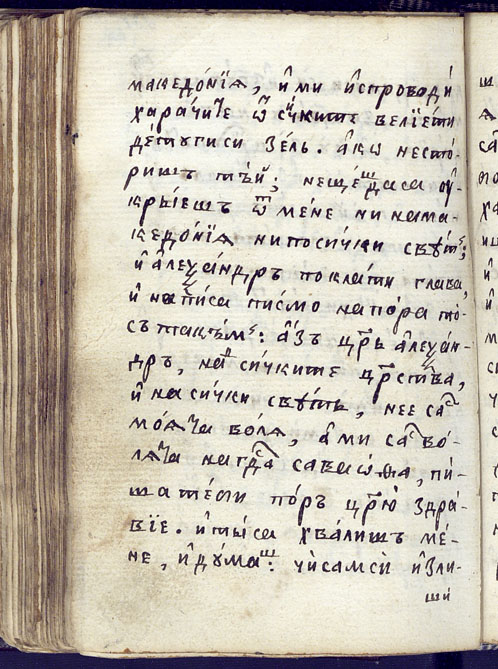 македо́нїѧ, и҆́ми и҆спроводи́
хара́чиⷮе ѿ си́чките велїе́ми
де́тꙋписи зе́лъ. а҆́кѡ несто́-
ришъ тъ́й; неще́ⷲ даса ᲂу҆-
кры́ешъ ѿ ме́не ни нама-
кедо́нїѧ нипоси́чки свѣ́тъ;
и҆ але́ѯандръ поклати глава̀,
и҆ напи́са писмо̀ напо́ра то-
съ такъ́мъ: а҆́зъ цр҃ь але́ѯан-
дръ, наⷣ си́чките цр҃ства,
и҆ наси́чки свѣ́тъ, нее саⷨ
моѧⷮа во́лѧ, а҆́ми саⷨ во́-
лѧⷮа нагдⷭ҇а саваѡ́ѳа, пи́-
шати по́ръ цр҃ю здра́-
вїе. и҆ ты́са хва́лишъ ме́-
не, и҆ дꙋ́маⷲ: чѝсамсѝ и҆зли-
ши́